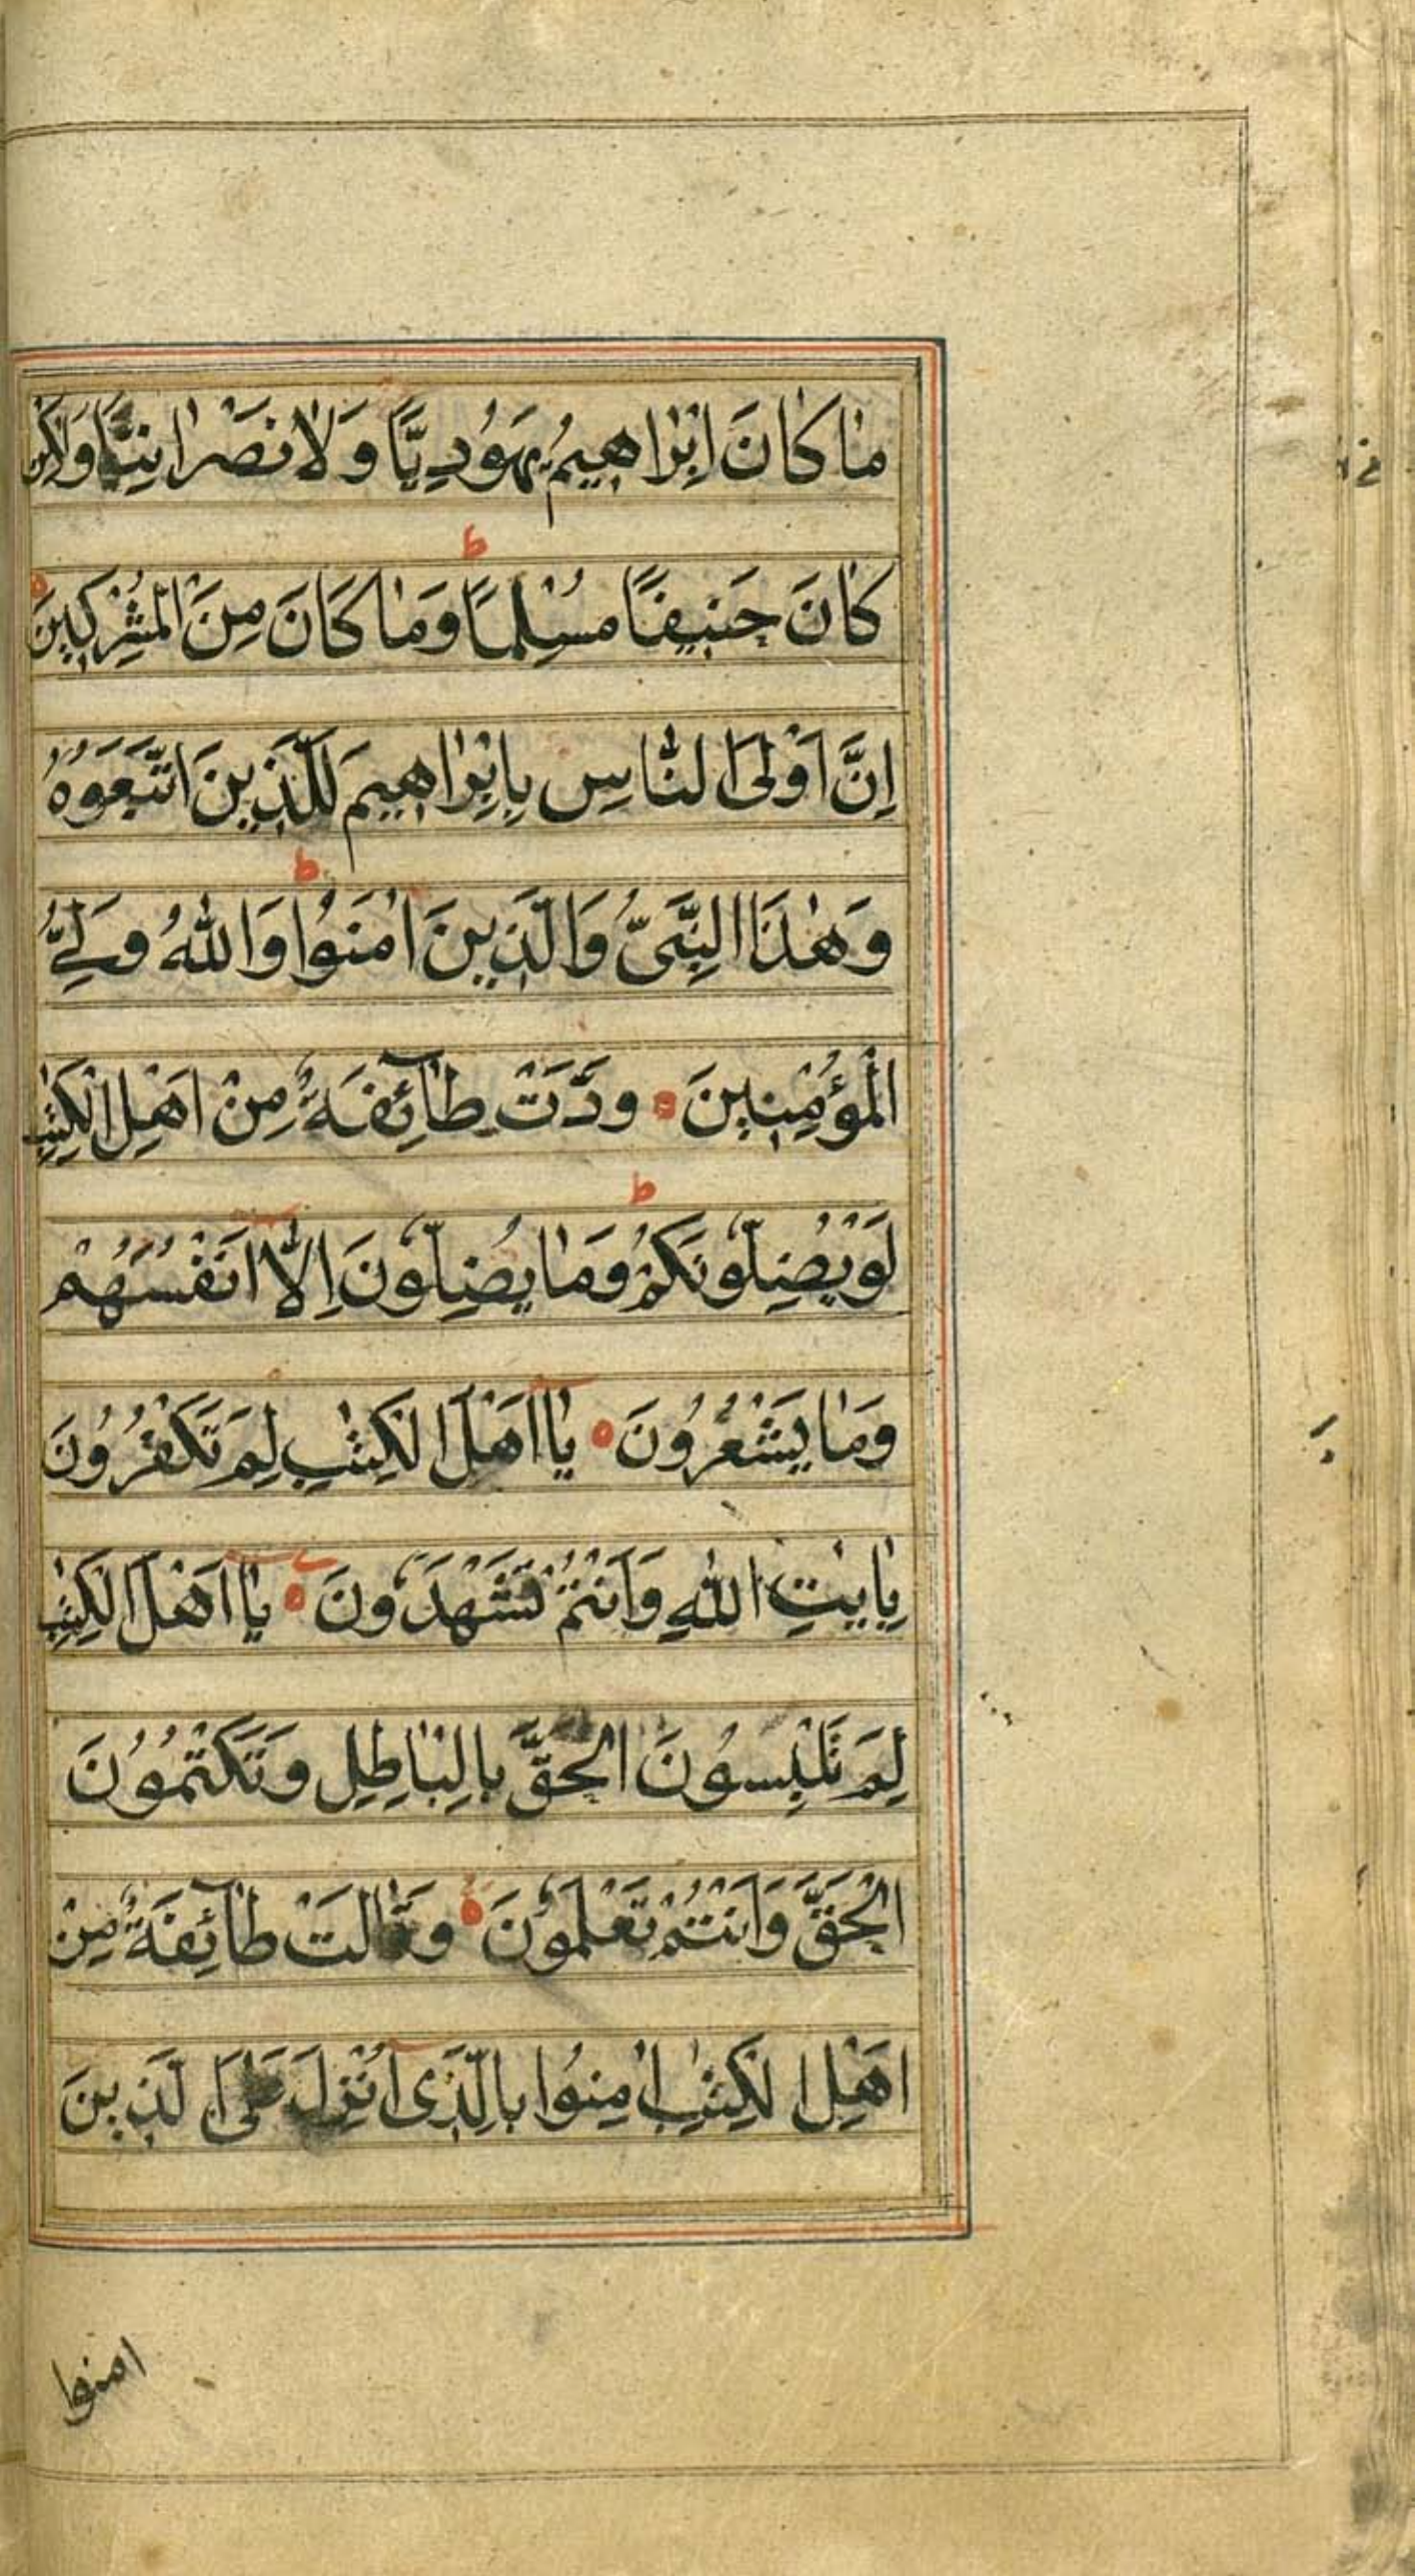 مٰا كٰانَ اِبْرٰاهٖيمُ يَهُودِيًّا وَلٰا نَصْرٰانِيًّا وَلٰكِنْ
كٰانَ حَنٖيفًا مُسْلِمًا ط وَمٰا كَانَ مِنَ الْمُشْرِكٖينَ ه
اِنَّ اَوْلَى النّٰاسِ بِاِبْرٰاهٖيمَ لَلَّذٖينَ اتَّبَعُوهُ
وَهٰذَا النَّبِىُّ وَالَّذٖينَ اٰمَنُوا ط وَاللّٰهُ وَلِىُّ
الْمُؤْمِنٖينَ ه وَدَّتْ طٰآئِفَةٌ مِنْ اَهْلِ الْكِتٰبِ
لَوْ يُضِلُّونَكُمْ ط وَمٰا يُضِلُّونَ اِلّٰا اَنْفُسَهُمْ
وَمٰا يَشْعُرُونَ ه يٰا اَهْلَ الْكِتٰبِ لِمَ تَكْفُرُونَ
بِاٰيٰتِ اللّٰهِ وَاَنْتُمْ تَشْهَدُونَ ه يٰا اَهْلَ الْكِتٰبِ
لِمَ تَلْبِسُونَ الْحَقَّ بِالْبٰاطِلِ وَتَكْتُمُونَ
الْحَقَّ وَاَنْتُمْ تَعْلَمُونَ ه وَقٰالَتْ طٰآئِفَةٌ مِنْ
اَهْلِ الْكِتٰبِ اٰمِنُوا بِالَّذٖى اُنْزِلَ عَلَى الَّذٖينَ
امنوا